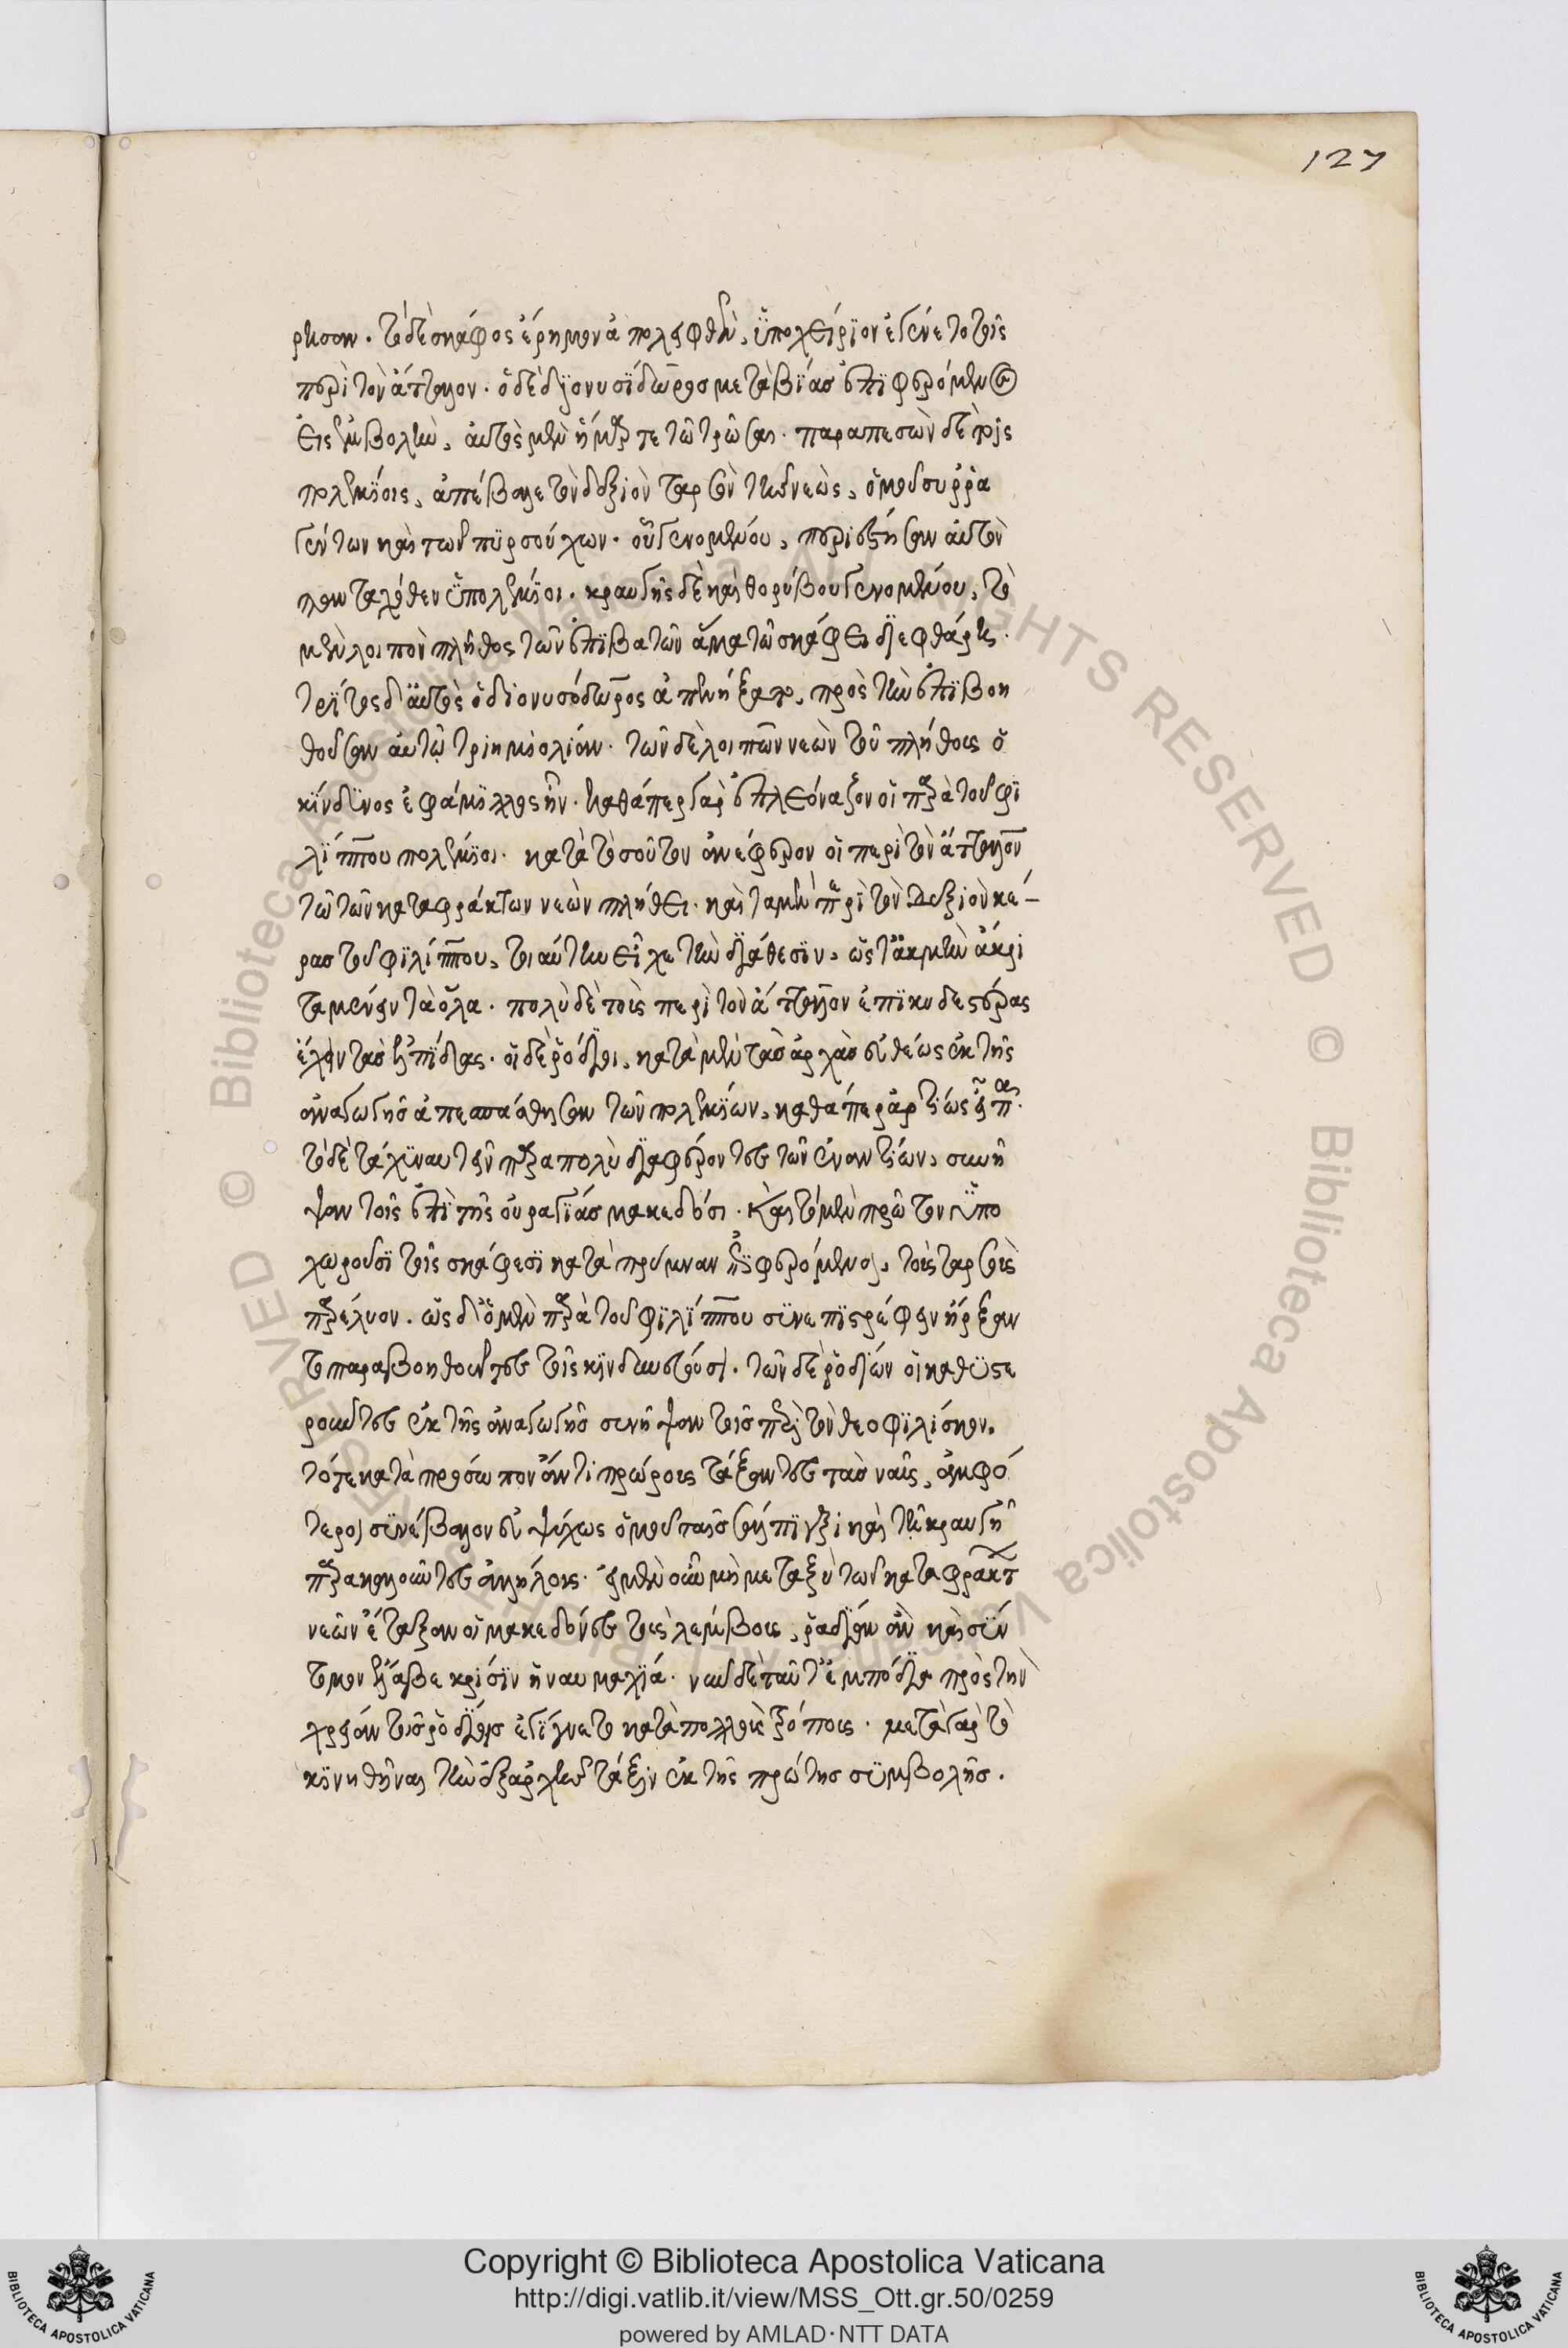 ρησαν. τὸ δὲ σκάφος ἔρημον ἀπολειφθὲν, ὑποχείριον ἐγένετο τοῖς
περὶ τὸν ἄτταλον. ὁ δὲ διονυσίδωρος μετὰ βίας ἐπιφερόμενος
εἰς ἐμβολὴν, αὐτὸς μὲν ἥμαρτε τῶ τρῶσαι. παραπεσὼν δὲ τοῖς
πολεμίοις, ἀπέβαλε τὸν δεξιὸν ταρσὸν τῆς νεὼς, ὁμοῦ συρρα
γέντων καὶ τῶν πυρσούχων. οὗ γενομένου, περιέστησαν αὐτὸν
πανταχόθεν ὑπολεμίοι. κραυγῆς δὲ καὶ θορύβου γενομένου, τὸ
μὲν λοιπὸν πλῆθος τῶν ἐπιβατῶν ἅμα τῶ σκάφει διεφθάρη.
τρίτος δ' αὐτὸς ὁ διονυσόδωρος ἀπενήξατο, πρὸς τὴν ἐπιβοη
θοῦσαν αὐτῷ τριημιολίαν. τῶν δὲ λοιπῶν νεῶν τοῦ πλήθους ὁ
κίνδυνος ἐφάμιλλος ἦν. καθάπερ γὰρ ἐπλεόναζον οἱ παρὰ τοῦ φι
λίππου πολεμίοι. κατὰ τοσοῦτον ἀνέφερον οἱ περὶ τὸν ἄτταλον
τῶ τῶν καταφράκτων νεῶν πλήθει. καὶ τὰ μὲν περὶ τὸν δεξιὸν κέ-
ρας τοῦ φιλίππου, τοιαύτην εἶχε τὴν διάθεσιν, ὥστ' ἀκμὴν ἄκρι
τα μένειν τὰ ὅλα. πολὺ δὲ τοῖς περὶ τὸν ἄτταλον ἐπικυδεστέρας
ἔχειν τὰς ἐλπίδας. οἱ δὲ ῥόδιοι, κατὰ μὲν τὰς ἀρχὰς εὐθέως ἐκ τῆς
ἀναγωγῆς ἀπεσπάσθησαν τῶν πολεμίων, καθάπερ ἀρτίως εἶπα.
τὸ δὲ ταχυναυτεῖν παρα πολὺ διαφέροντες τῶν ἐναντίων, συνῆ
ψαν τοῖς ἐπὶ τῆς οὐραγίας μακεδόσι. καὶ τὸ μὲν πρῶτον ὑπο
χωροῦσι τοῖς σκάφεσι κατὰ πρύμναν ἐπιφερόμενοι, τοὺς ταρσοὺς
παρέλυον. ὡς δ' ὁ μὲν παρὰ τοῦ φιλίππου συνεπιστρέφειν ἤρξαν
το παραβοηθοῦντες τοῖς κινδυνεύουσι. τῶν δὲ ῥοδίων οἱ καθυστε
ροῦντες ἐκ τῆς ἀναγωγῆς συνῆψαν τοῖς περὶ τὸν θεοφιλίσκον.
τότε κατὰ πρόσωπον ἀντιπρώρους τάξαντες τὰς ναῦς, ἀμφό
τεροι συνέβαλον εὐψύχως ὁμοῦ ταῖς σάλπιγξι καὶ τῇ κραυγῇ
παρακαλοῦντες ἀλλήλους. εἰ μὲν οὖν μὴ μεταξὺ τῶν καταφράκτ
νεῶν ἔταξαν οἱ μακεδόνες τοὺς λέμβους, ῥαδίαν ἂν καὶ σύν
τομον ἔλαβε κρίσιν ἡ ναυμαχία. νῦν δὲ ταῦτ' ἐμπόδια πρὸς τὴν
χρείαν τοῖς ῥοδίοις ἐγίγνετο κατὰ πολλοὺς τρόπους. μετὰ γὰρ τὸ
κινηθῆναι τὴν ἐξαρχῆς τάξιν ἐκ τῆς πρώτης συμβολῆς.
127
Copyright © Biblioteca Apostolica Vaticana
http://digi.vatlib.it/view/MSS_Ott.gr.50/0259
powered by AMLAD·NTT DATA